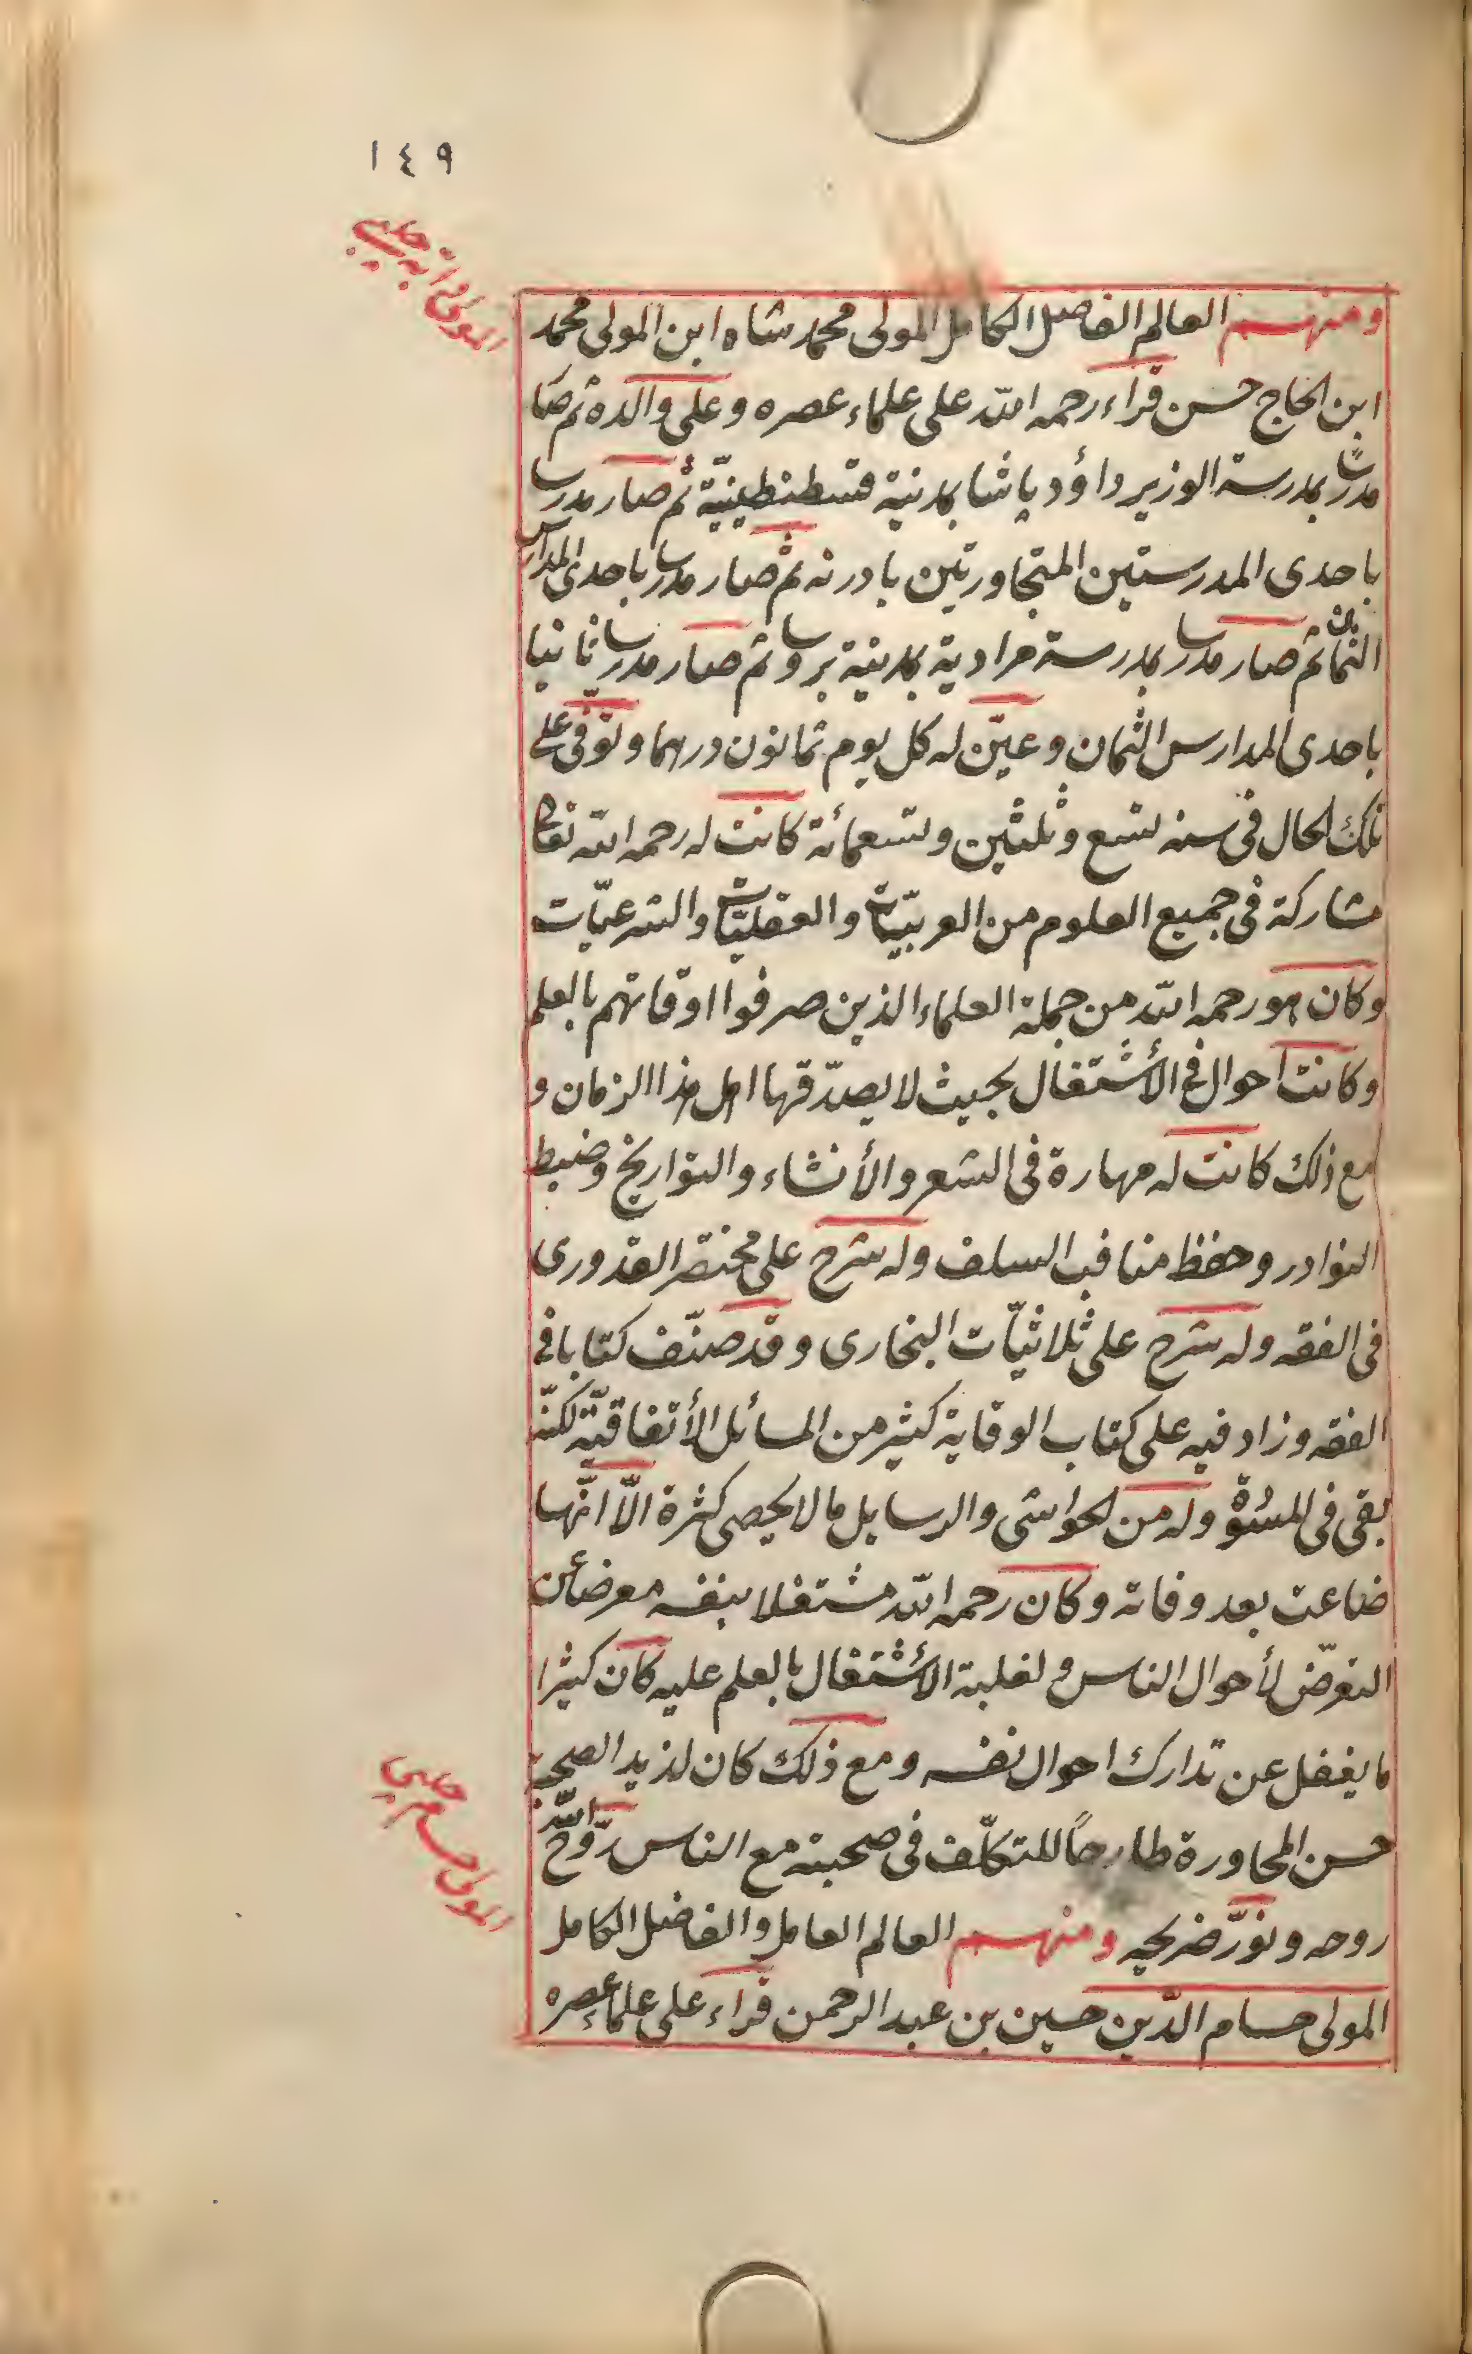 ١٤٩
ومنهم العالم الفاضل الكامل المولى محمد شاه ابن المولى محمد
ابن الحاج حسن قراء رحمه الله على علماء عصره وعلى والده ثم صار
مدرسا بمدرسة الوزير داؤد پاشا بمدينة قسطنطينيّة ثم صار مدرسا
باحدى المدرستين المتجاورتين بادرنه ثم صار مدرسا باحدى المدارس
الثمان ثم صار مدرسا بمدرسة مرادية بمدينة بروسا ثم صار مدرسا ثانيا
باحدى المدارس الثمان وعيّن له كل يوم ثمانون درهما وتوّفى على
تلك الحال فى سنه تسع وثلثين وتسعمائة كانت له رحمه الله تعالى
مشاركة فى جميع العلوم من العربيّات والعقليّات والشرعيّات
وكان هو رحمه الله من جملة العلماء الذين صرفوا اوقاتهم بالعلم
وكانت احوال فى الأشتغال بحيث لا يصدّقها اهل هذا الزمان و
مع ذلك كانت له مهارة فى الشعر والأنشاء والتواريخ وضبط
النوادر وحفظ مناقب السلف وله شرح على مختصر القدورى
فى الفقه وله شرح على ثلاثيّات البخارى وقد صنّف كتابا فى
الفقه وزاد فيه على كتاب الوقاية كثير من المسائل الأتفاقيّة لكنّه
بقى فى المسوّدة وله من الحواشى والرسايل ما لا يحصى كثرة الاّ انّها
ضاعت بعد وفاته وكان رحمه الله مشتغلا بنفسه معرضا عن
التعرّض لأحوال الناس ولغلبة الأشتغال بالعلم عليه كان كثيرا
ما يغفل عن تدارك احوال نفسه ومع ذلك كان لذيد الصحبة
حسن المحاورة طارحاً للتكلّف فى صحبته مع الناس روّح الله
روحه ونوّر ضريحه ومنهم العالم العامل والفاضل الكامل
المولى حسام الدّين حسين بن عبد الرحمن قراء على علماء عصره
المولى حسام چلبى